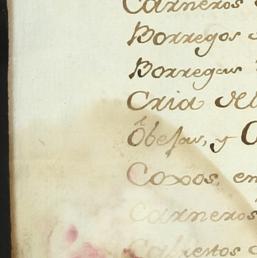 Carneros
Borregos
Borregas
Cria del
Obejas, y
Coxos, en
Carneros
Cabestos